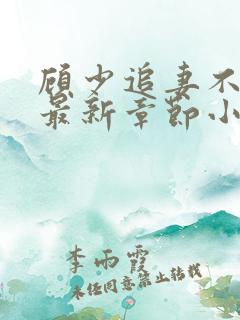 顾少追妻不
最新章节小
李雨霞
未任同意禁止转载